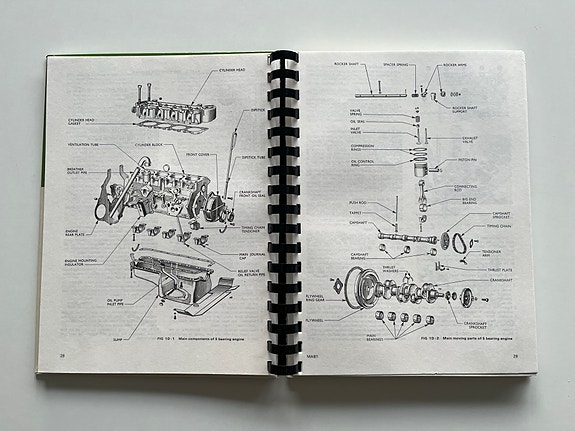 CYLINDER HEAD
CYLINDER HEAD
GASKET
DIPSTICK
VENTILATION TUBE
CYLINDER BLOCK
FRONT COVER
DIPSTICK TUBE
BREATHER
OUTLET PIPE
CRANKSHAFT
FRONT OIL SEAL
ENGINE
REAR PLATE
TIMING CHAIN
TENSIONER
MAIN JOURNAL
CAP
ENGINE MOUNTING
INSULATOR
RELIEF VALVE
OIL RETURN PIPE
OIL PUMP
INLET PIPE
SUMP
FIG 1D:1 Main components of 5 bearing engine
28
ROCKER SHAFT
SPACER SPRING
ROCKER ARMS
ROCKER SHAFT
SUPPORT
VALVE
SPRING
OIL SEAL
INLET
VALVE
EXHAUST
VALVE
COMPRESSION
RINGS
OIL CONTROL
RING
PISTON PIN
CONNECTING
ROD
BIG END
BEARING
PUSH ROD
TAPPET
CAMSHAFT
CAMSHAFT
SPROCKET
TIMING CHAIN
TENSIONER
ARM
CAMSHAFT
BEARINGS
THRUST
WASHERS
THRUST PLATE
FLYWHEEL
RING GEAR
FLYWHEEL
CRANKSHAFT
SPROCKET
MAIN
BEARINGS
FIG 1D:2 Main moving parts of 5 bearing engine
29